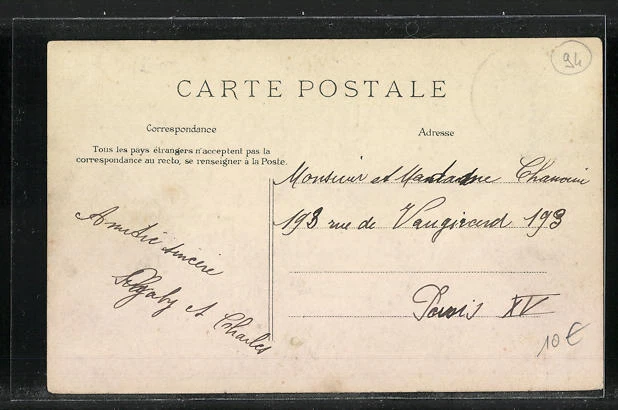 94
CARTE POSTALE
Correspondance
Adresse
Tous les pays étrangers n'acceptent pas la
correspondance au recto, se renseigner à la Poste.
Monsieur et Madame
193 rue de Vaugirard 193
Paris XV
Amitié sincère
Gaby et Charles
10€